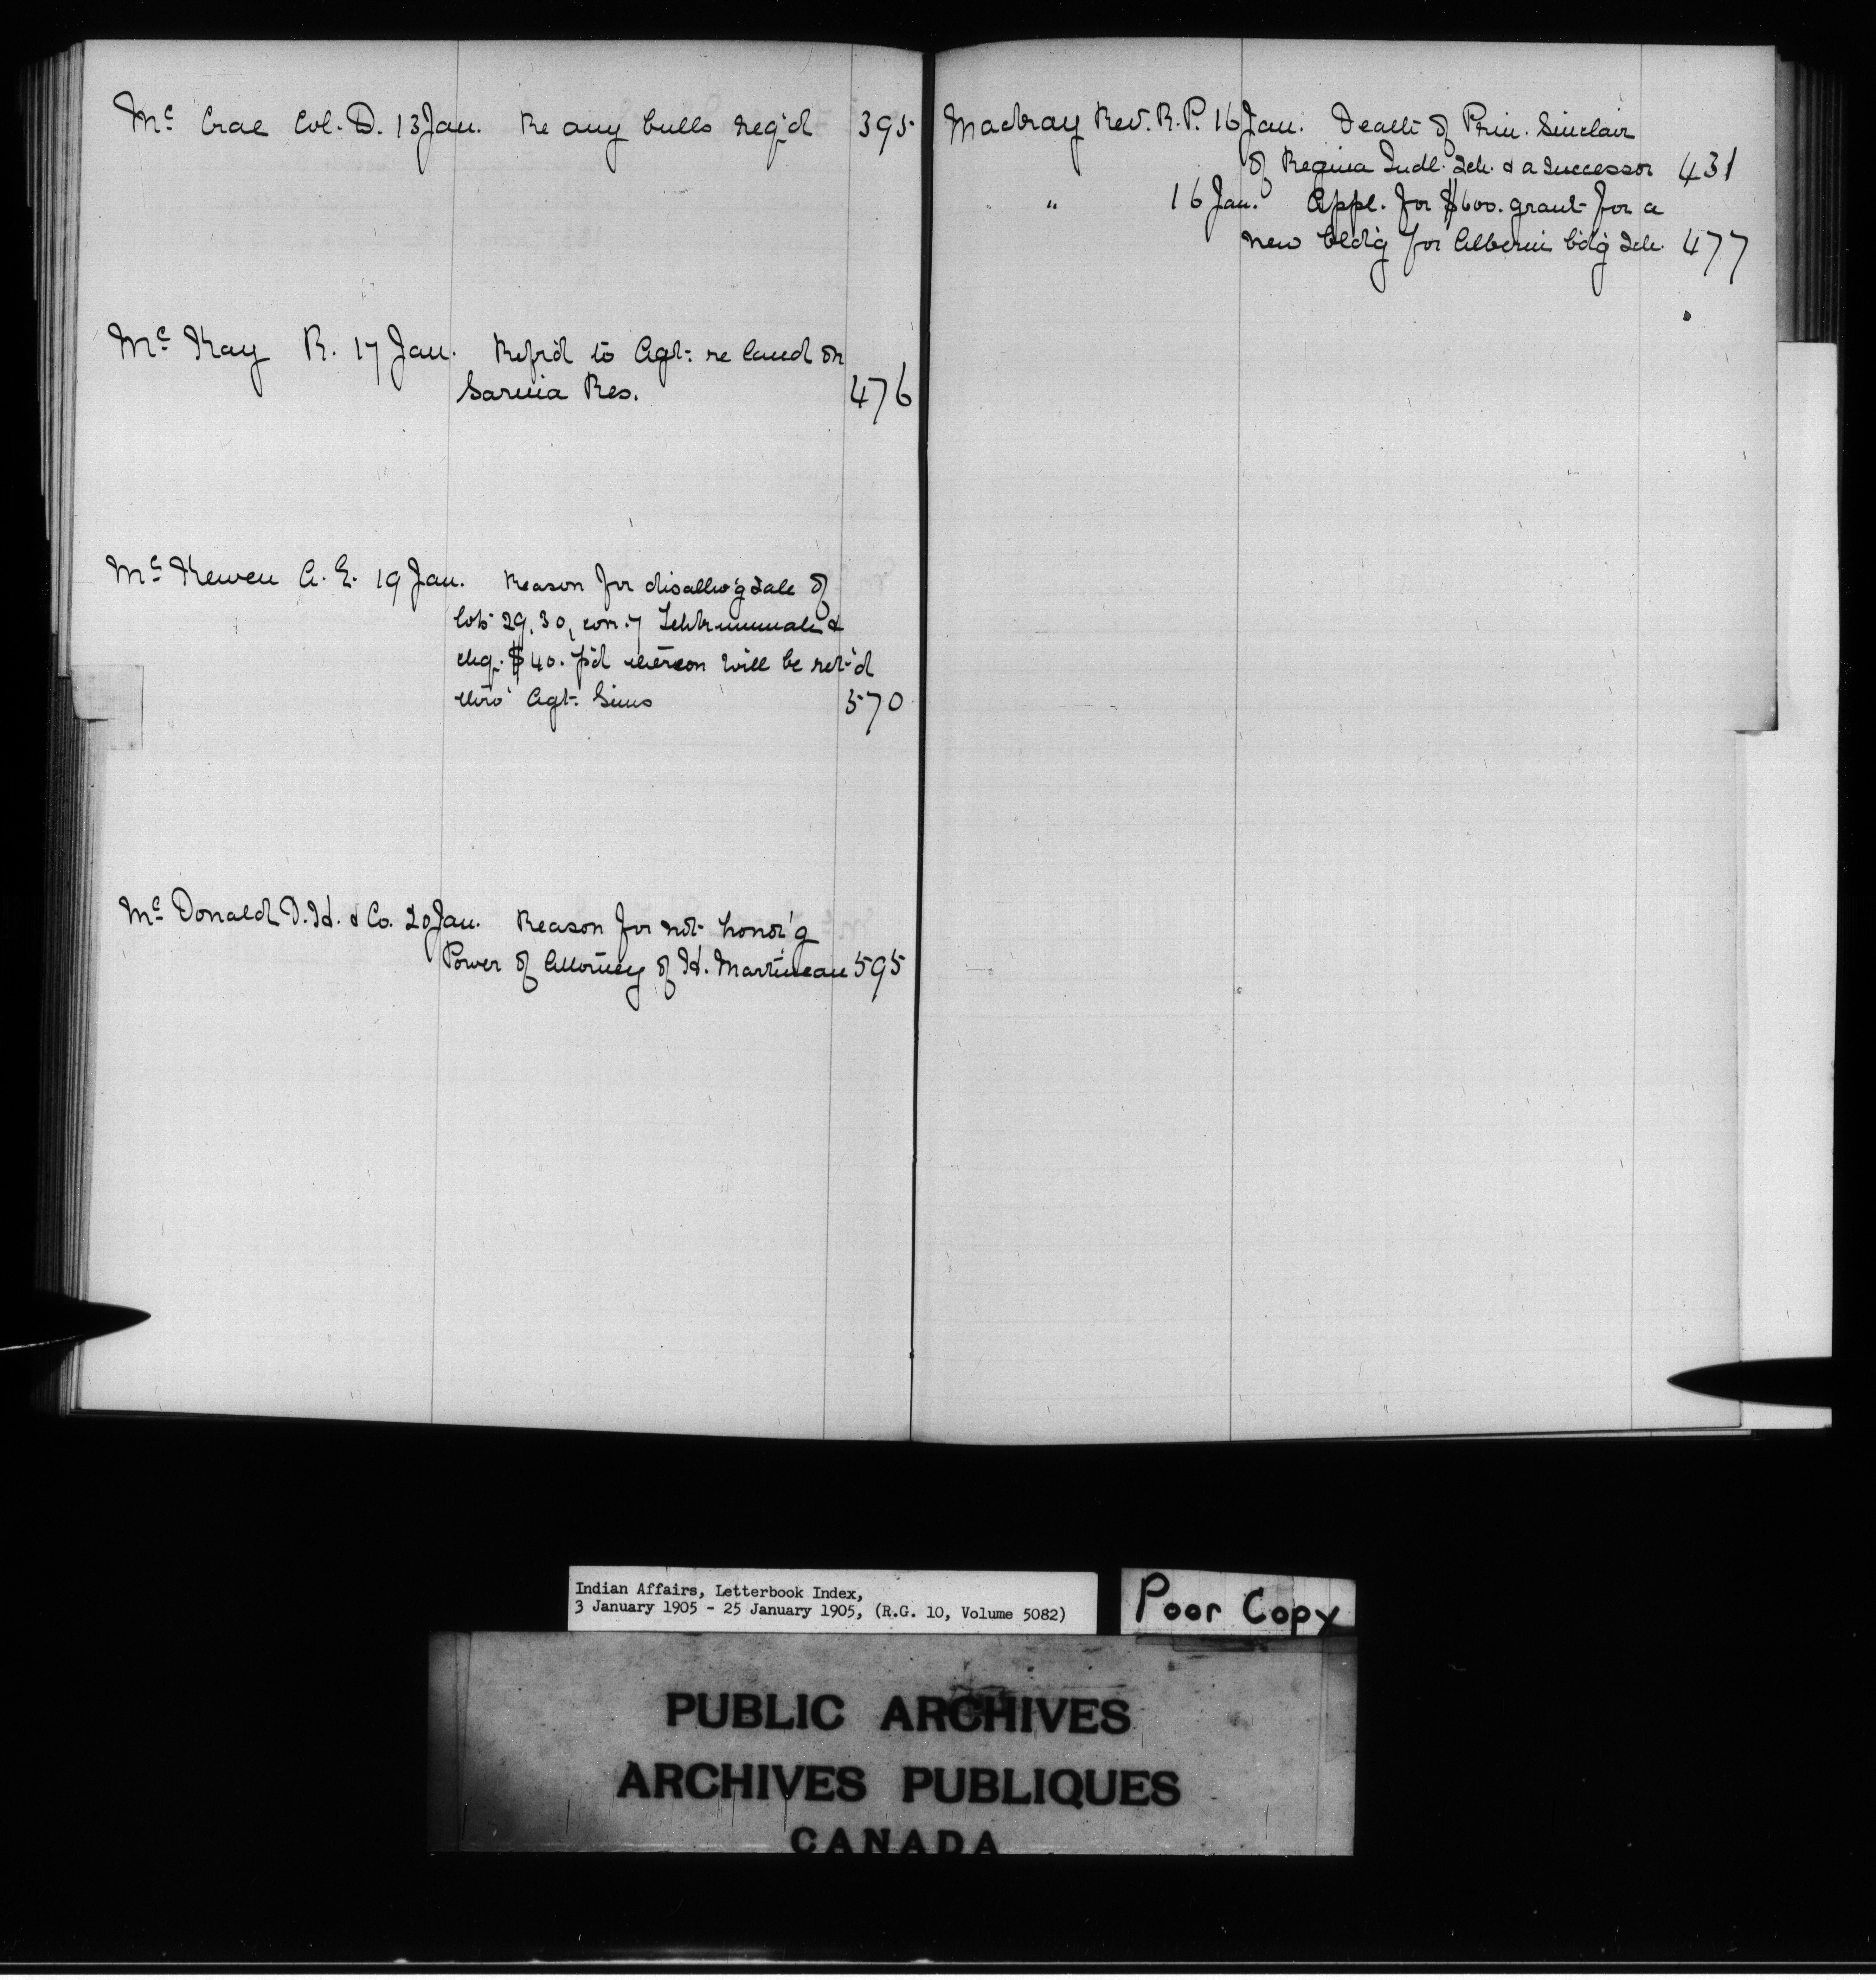 Mc Crae Col. D. 13 Jan. Re any bulls req'd 395
Mc Kay R. 17 Jan. Refr'd to Agt: re land on
Sarnia Res. 476
Mc Kewen A. E. 19 Jan. Reason for disallow'g sale of
lots 29, 30, con. 7 Tehkummah &
chq. $40. p'd thereon will be ret'd
thro' Agt. Sims 570
Mc Donald D. H. & Co. 20 Jan. Reason for not honor'g
Power of Attorney of H. Martineau 595
MacKay Rev. R. P. 16 Jan. Death of Prin. Sinclair
of Regina Indl. Sch. & a successor 431
" 16 Jan. Appl. for $600. grant for a
new bld'g for Alberni b'd'g Sch. 477
Indian Affairs, Letterbook Index,
3 January 1905 - 25 January 1905, (R.G. 10, Volume 5082)
Poor Copy
PUBLIC ARCHIVES
ARCHIVES PUBLIQUES
CANADA